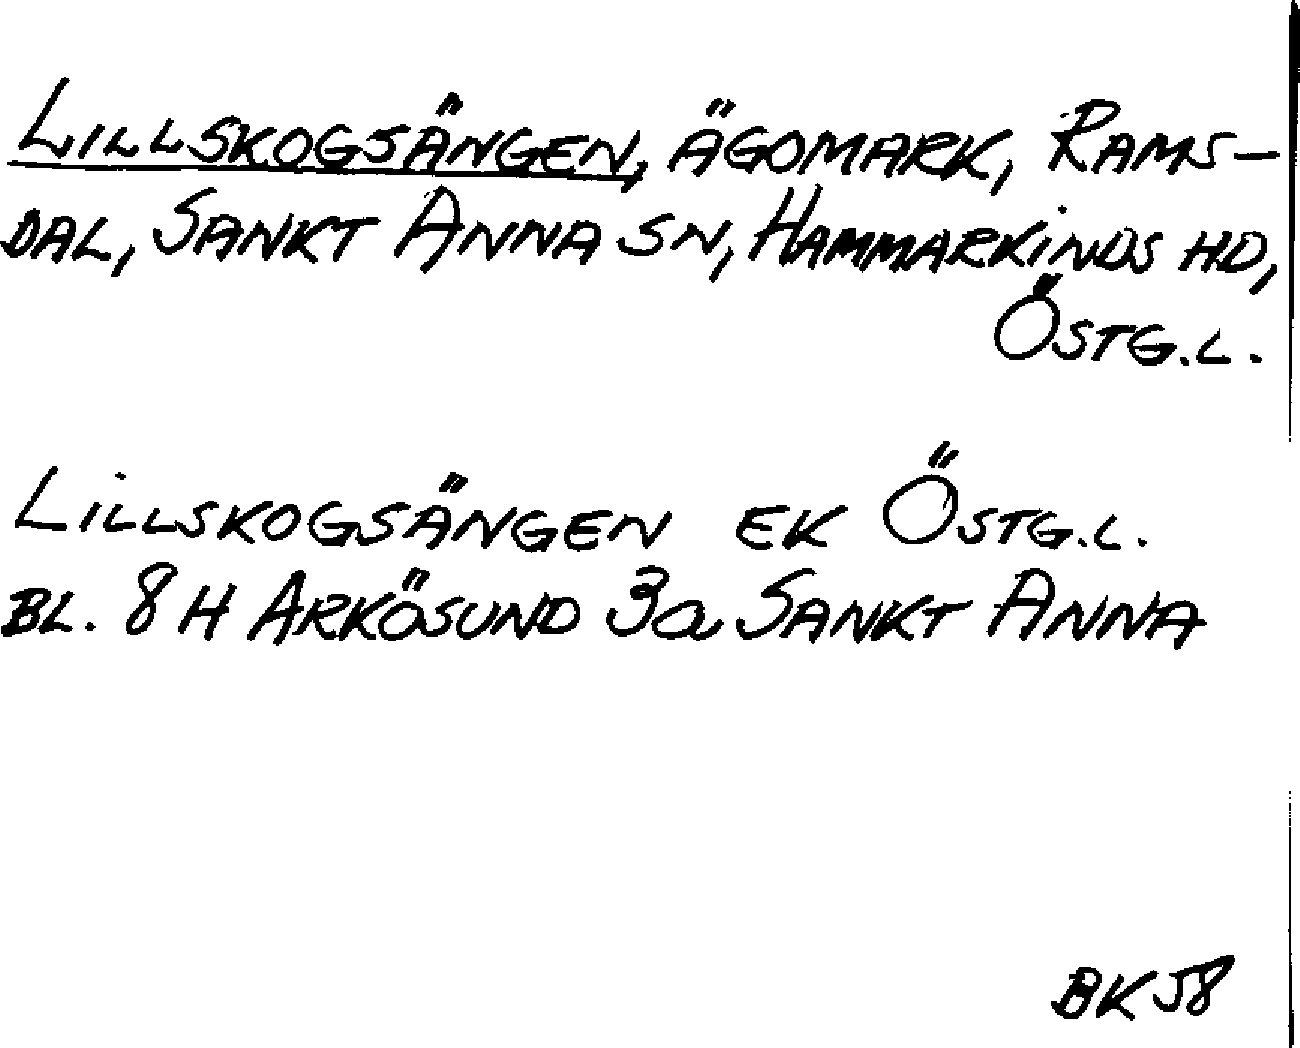 LILLSKOGSÄNGEN, ÄGOMARK, RAMS-
DAL, SANKT ANNA SN, HAMMARKINDS HD,
ÖSTG.L.
LILLSKOGSÄNGEN EK ÖSTG.L.
BL. 8 H ARKÖSUND 3a SANKT ANNA
BK 58